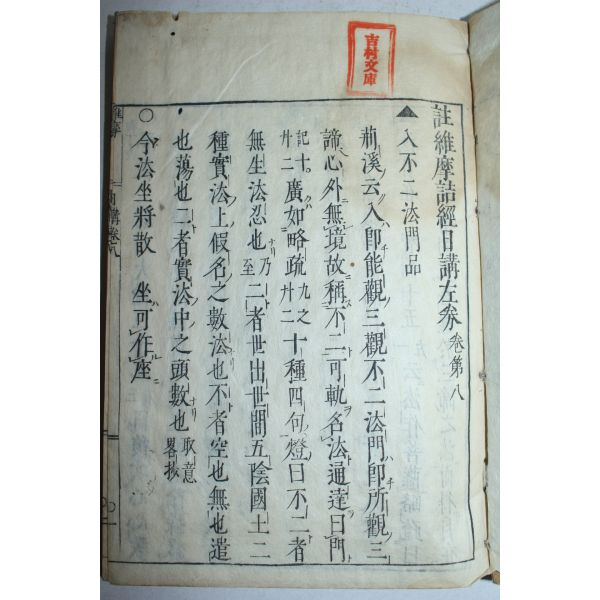 吉村文庫
註維摩詰經日講左券 卷第八
入不二法門品
荊溪云入即能觀三觀不二法門即所觀三
諦心外無境故稱不二可軌名法通達曰門
記十廿二 廣如略疏九之廿二 十種四句燈曰不二者
無生法忍也乃至 二者世出世間五陰國土二
種實法上假名之數法也不者空也無也遣
也蕩也二者實法中之頭數也 取意畧抄
○今法坐將散 坐可作座